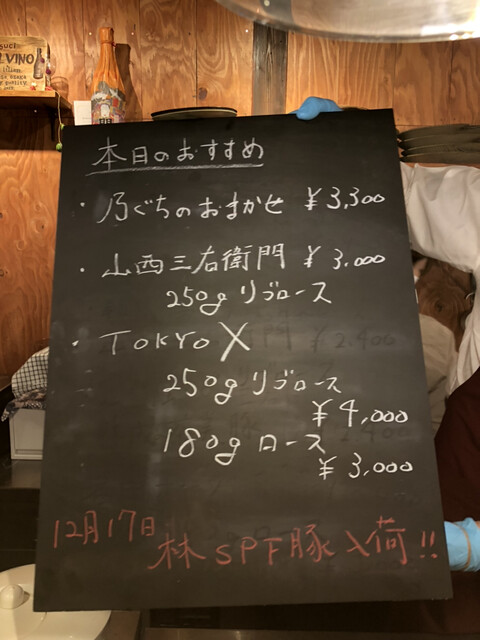 UCI
LVINO
本日のおすすめ
・乃ぐちのおまかせ ¥3,300
・山西三右衛門 ¥3,000
250g リブロース
・TOKYO X
250g リブロース
¥4,000
180g ロース
¥3,000
12月17日 林SPF豚入荷!!